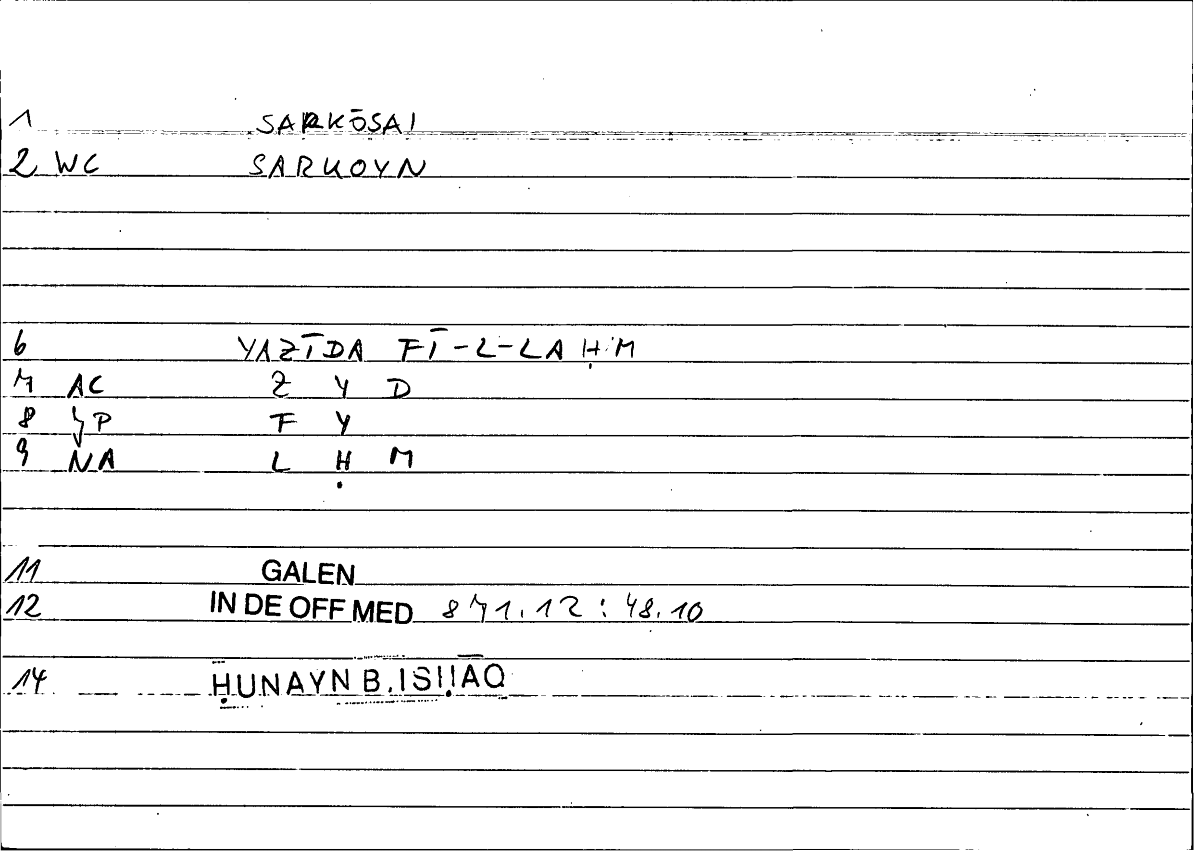 1 SARKŌSAI
2 WC SARKOYN
6 YAZĪDA FĪ-L-LAḤM
7 AC Z Y D
8 P F Y
9 NA L Ḥ M
11 GALEN
12 IN DE OFF MED 871.12 : 48.10
14 ḤUNAYN B. ISḤĀQ